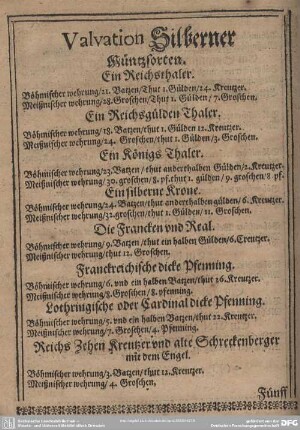 Valvation Silberner
Müntzsorten.
Ein Reichsthaler.
Böhmischer wehrung/21. Batzen/Thut 1. Gülden/24. Kreutzer.
Meißnischer wehrung/28. Groschen/Thut 1. Gülden / 7. Groschen.
Ein Reichsgülden Thaler.
Böhmischer wehrung/18. Batzen/thut 1. Gülden 12. Kreutzer.
Meißnischer wehrung/24. Groschen/thut 1. Gülden/3. Groschen.
Ein Königs Thaler.
Böhmischer wehrung/23. Batzen / thut anderthalben Gülden/2. Kreutzer.
Meißnischer wehrung/30. groschen/8. pf. thut 1. gülden / 9. groschen/8. pf.
Ein silberne Krone.
Böhmischer wehrung/24. Batzen/thut anderthalben gülden/6. Kreutzer.
Meißnischer wehrung/32. groschen/thut 1. Gülden/11. Groschen.
Die Francken vnd Real.
Böhmischer wehrung/9. Batzen/thut ein halben Gülden/6. Creutzer.
Meißnischer wehrung/thut 12. Groschen.
Franckreichische dicke Pfenning.
Böhmischer wehrung/6. vnd ein halben Batzen/thut 26. Kreutzer.
Meißnischer wehrung/8. Groschen/8. pfenning.
Lothringische oder Cardinal dicke Pfenning.
Böhmischer wehrung/5. vnd ein halben Batzen/thut 22. Kreutzer.
Meißnischer wehrung/7. Groschen/4. Pfenning.
Reichs Zehen Kreutzer vnd alte Schreckenberger
mit dem Engel.
Böhmischer wehrung/3. Batzen/thut 12. Kreutzer.
Meißnischer wehrung/ 4. Groschen.
Fünff